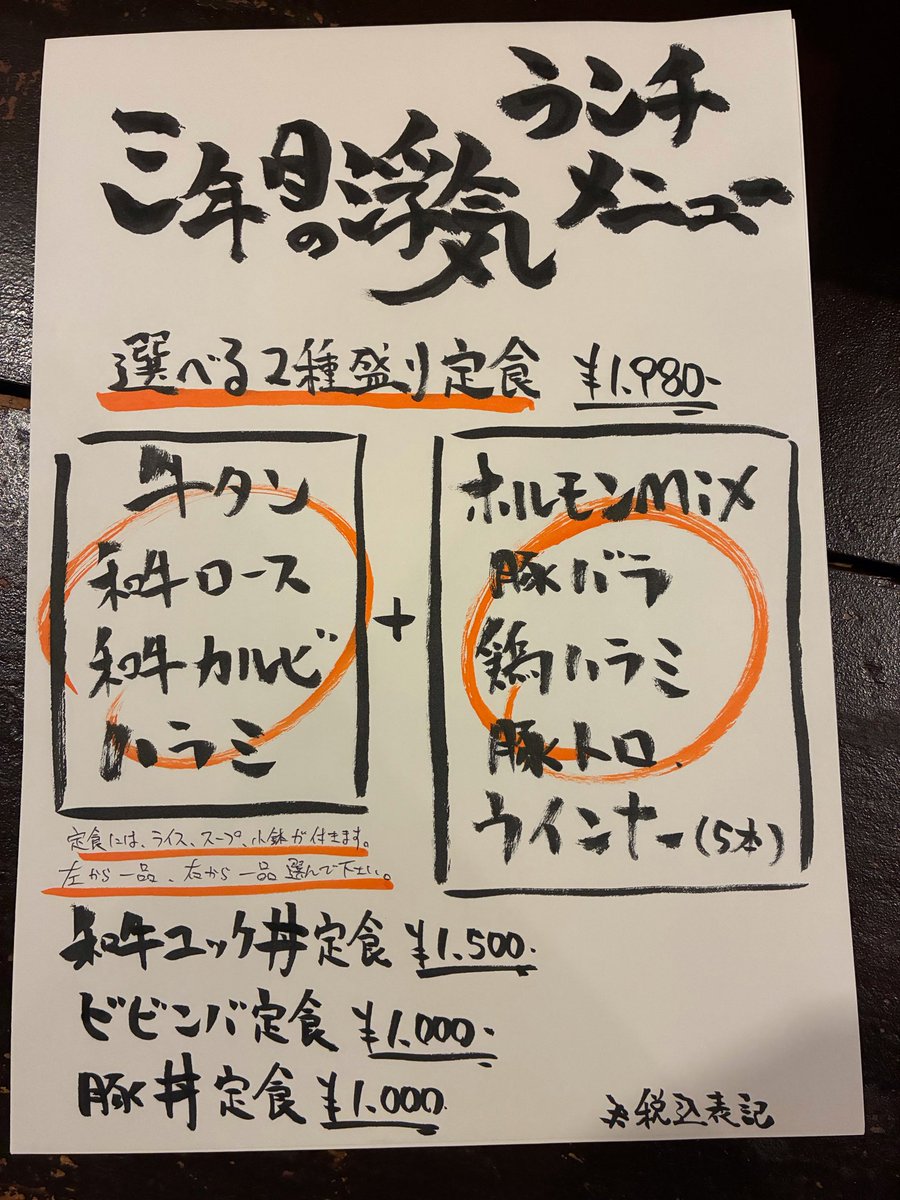 三年目の浮気
ランチ
メニュー
選べる2種盛り定食 ¥1.980-
牛タン
和牛ロース
和牛カルビ
ハラミ
+
ホルモンMiX
豚バラ
鶏ハラミ
豚トロ
ウインナー(5本)
定食には、ライス、スープ、小鉢が付きます。
左から一品、右から一品選んで下さい。
和牛ユッケ丼定食 ¥1.500-
ビビンバ定食 ¥1.000-
豚丼定食 ¥1.000-
※税込表記